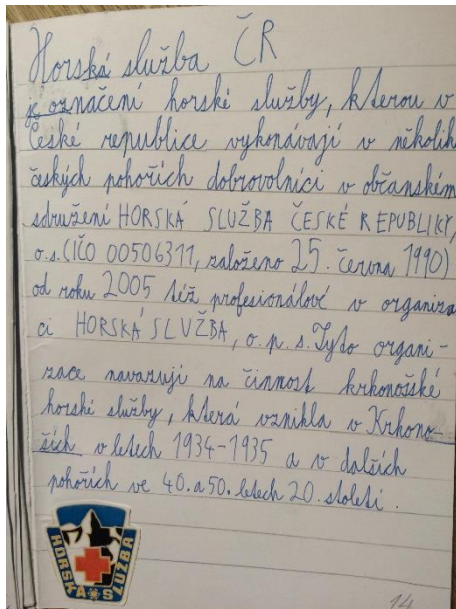 Horská služba ČR
je označení horské služby, kterou v
České republice vykonávají v několik
českých pohořích dobrovolníci v občanském
sdružení HORSKÁ SLUŽBA ČESKÉ REPUBLIKY,
o.s.(IČO 00506311, založeno 25. června 1990)
od roku 2005 též profesionálové v organiza
ci HORSKÁ SLUŽBA, o.p.s. Tyto organi-
zace navazují na činnost krkonošské
horské služby, která vznikla v Krkono-
ších v letech 1934-1935 a v dalších
pohořích ve 40. a 50. letech 20. století.
HORSKÁ SLUŽBA
14